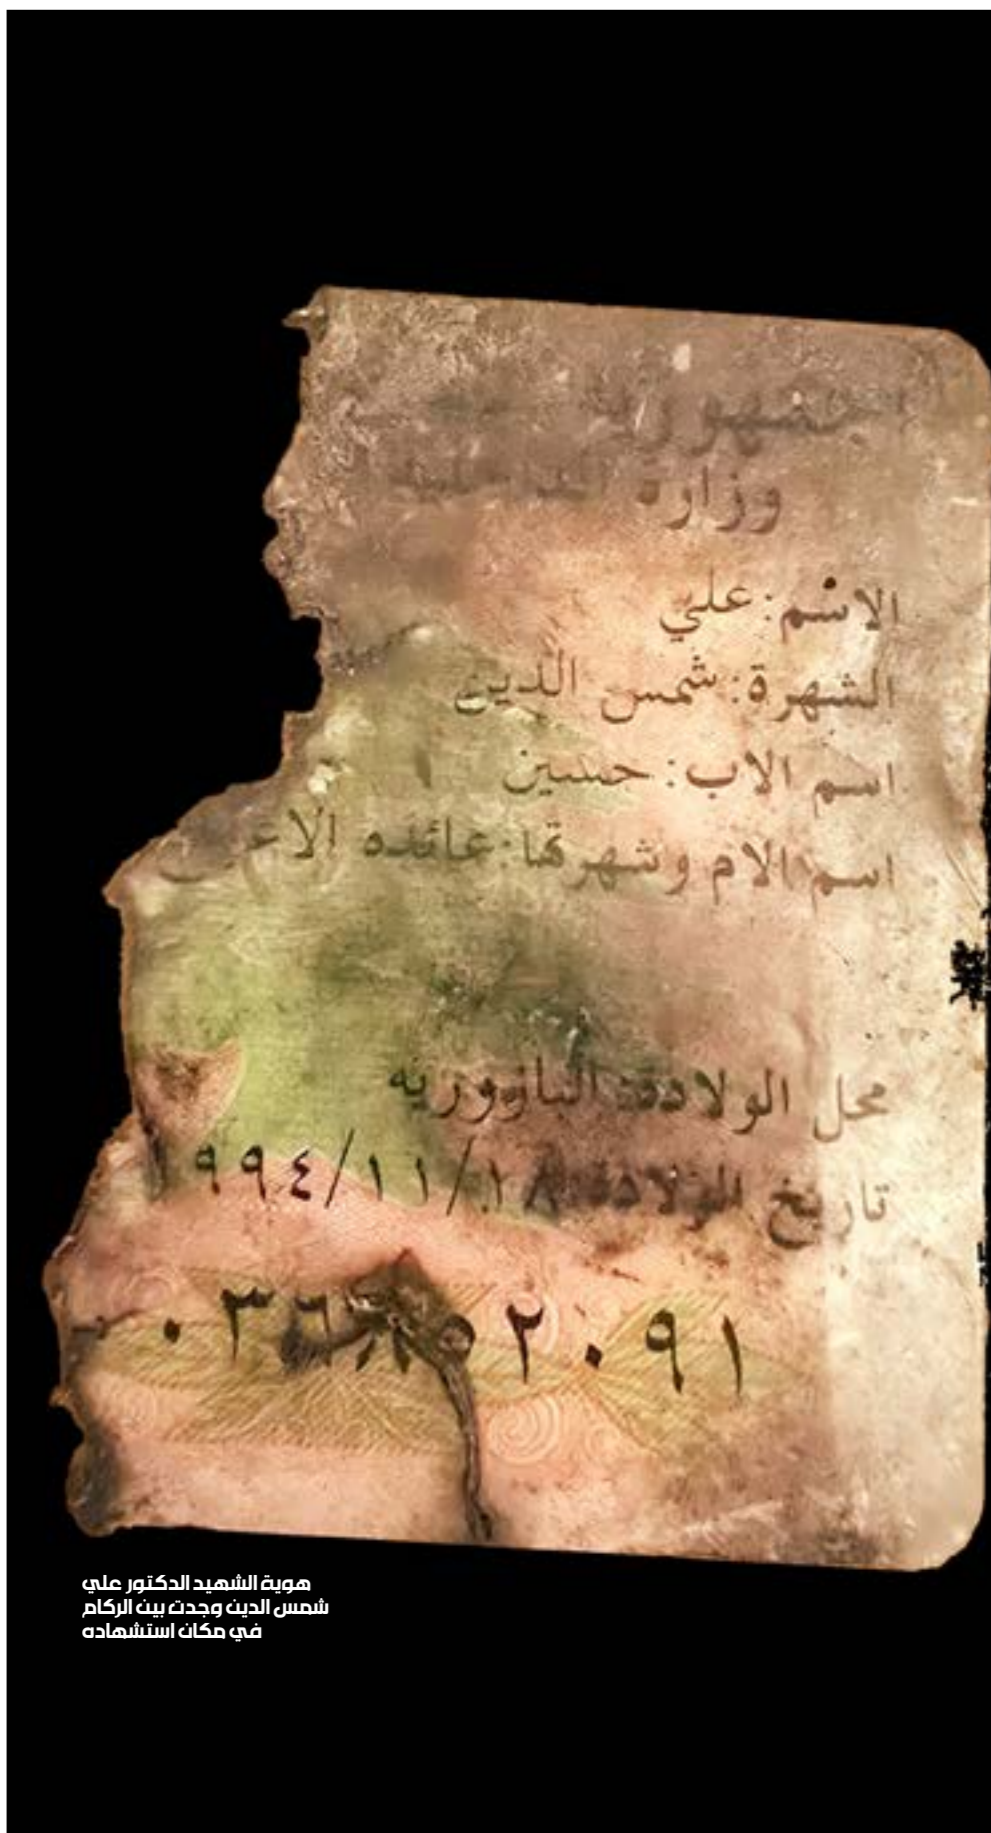 الجمهورية
وزارة الداخلية
الاسم: علي
الشهرة: شمس الدين
اسم الاب: حسين
اسم الام وشهرتها: عائده الاعر
محل الولادة: البازوريه
تاريخ الولادة ١٨/١١/٩٩٤
٠٣٦٨٥٢٠٩١
هوية الشهيد الدكتور علي
شمس الدين وجدت بين الركام
في مكان استشهاده